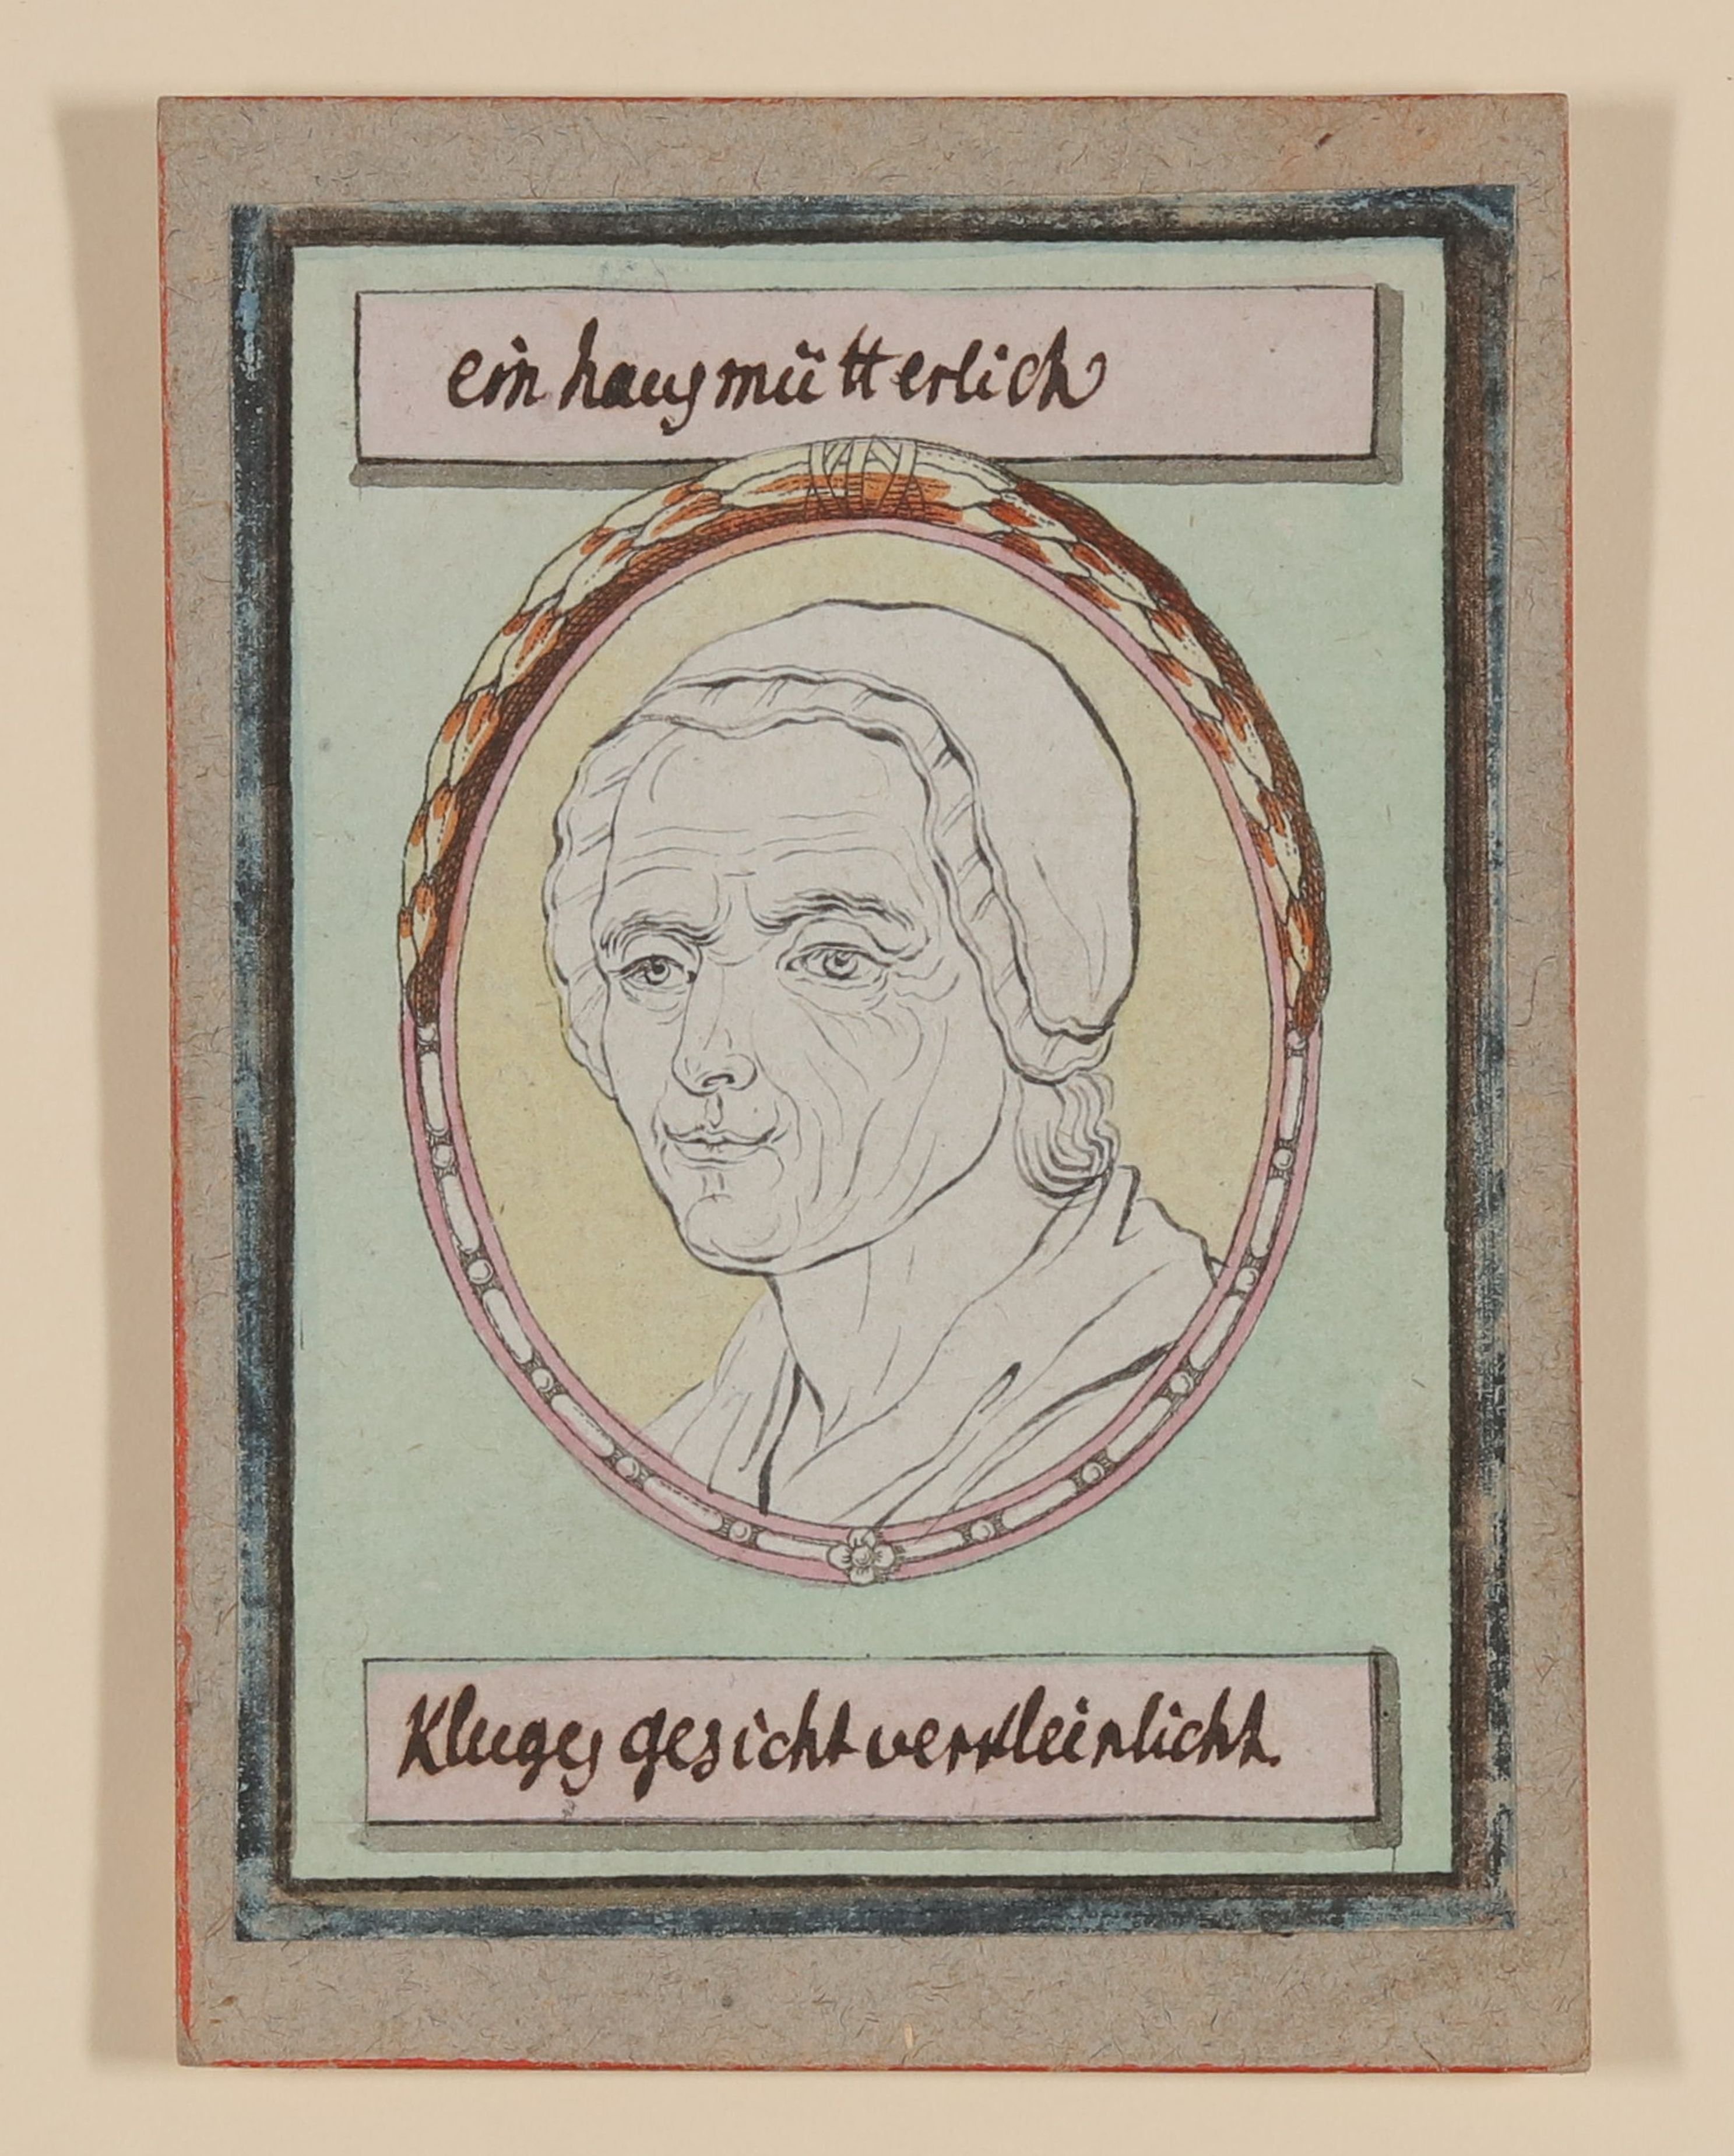 ein hausmütterlich
Kluges gesicht verkleinlicht.